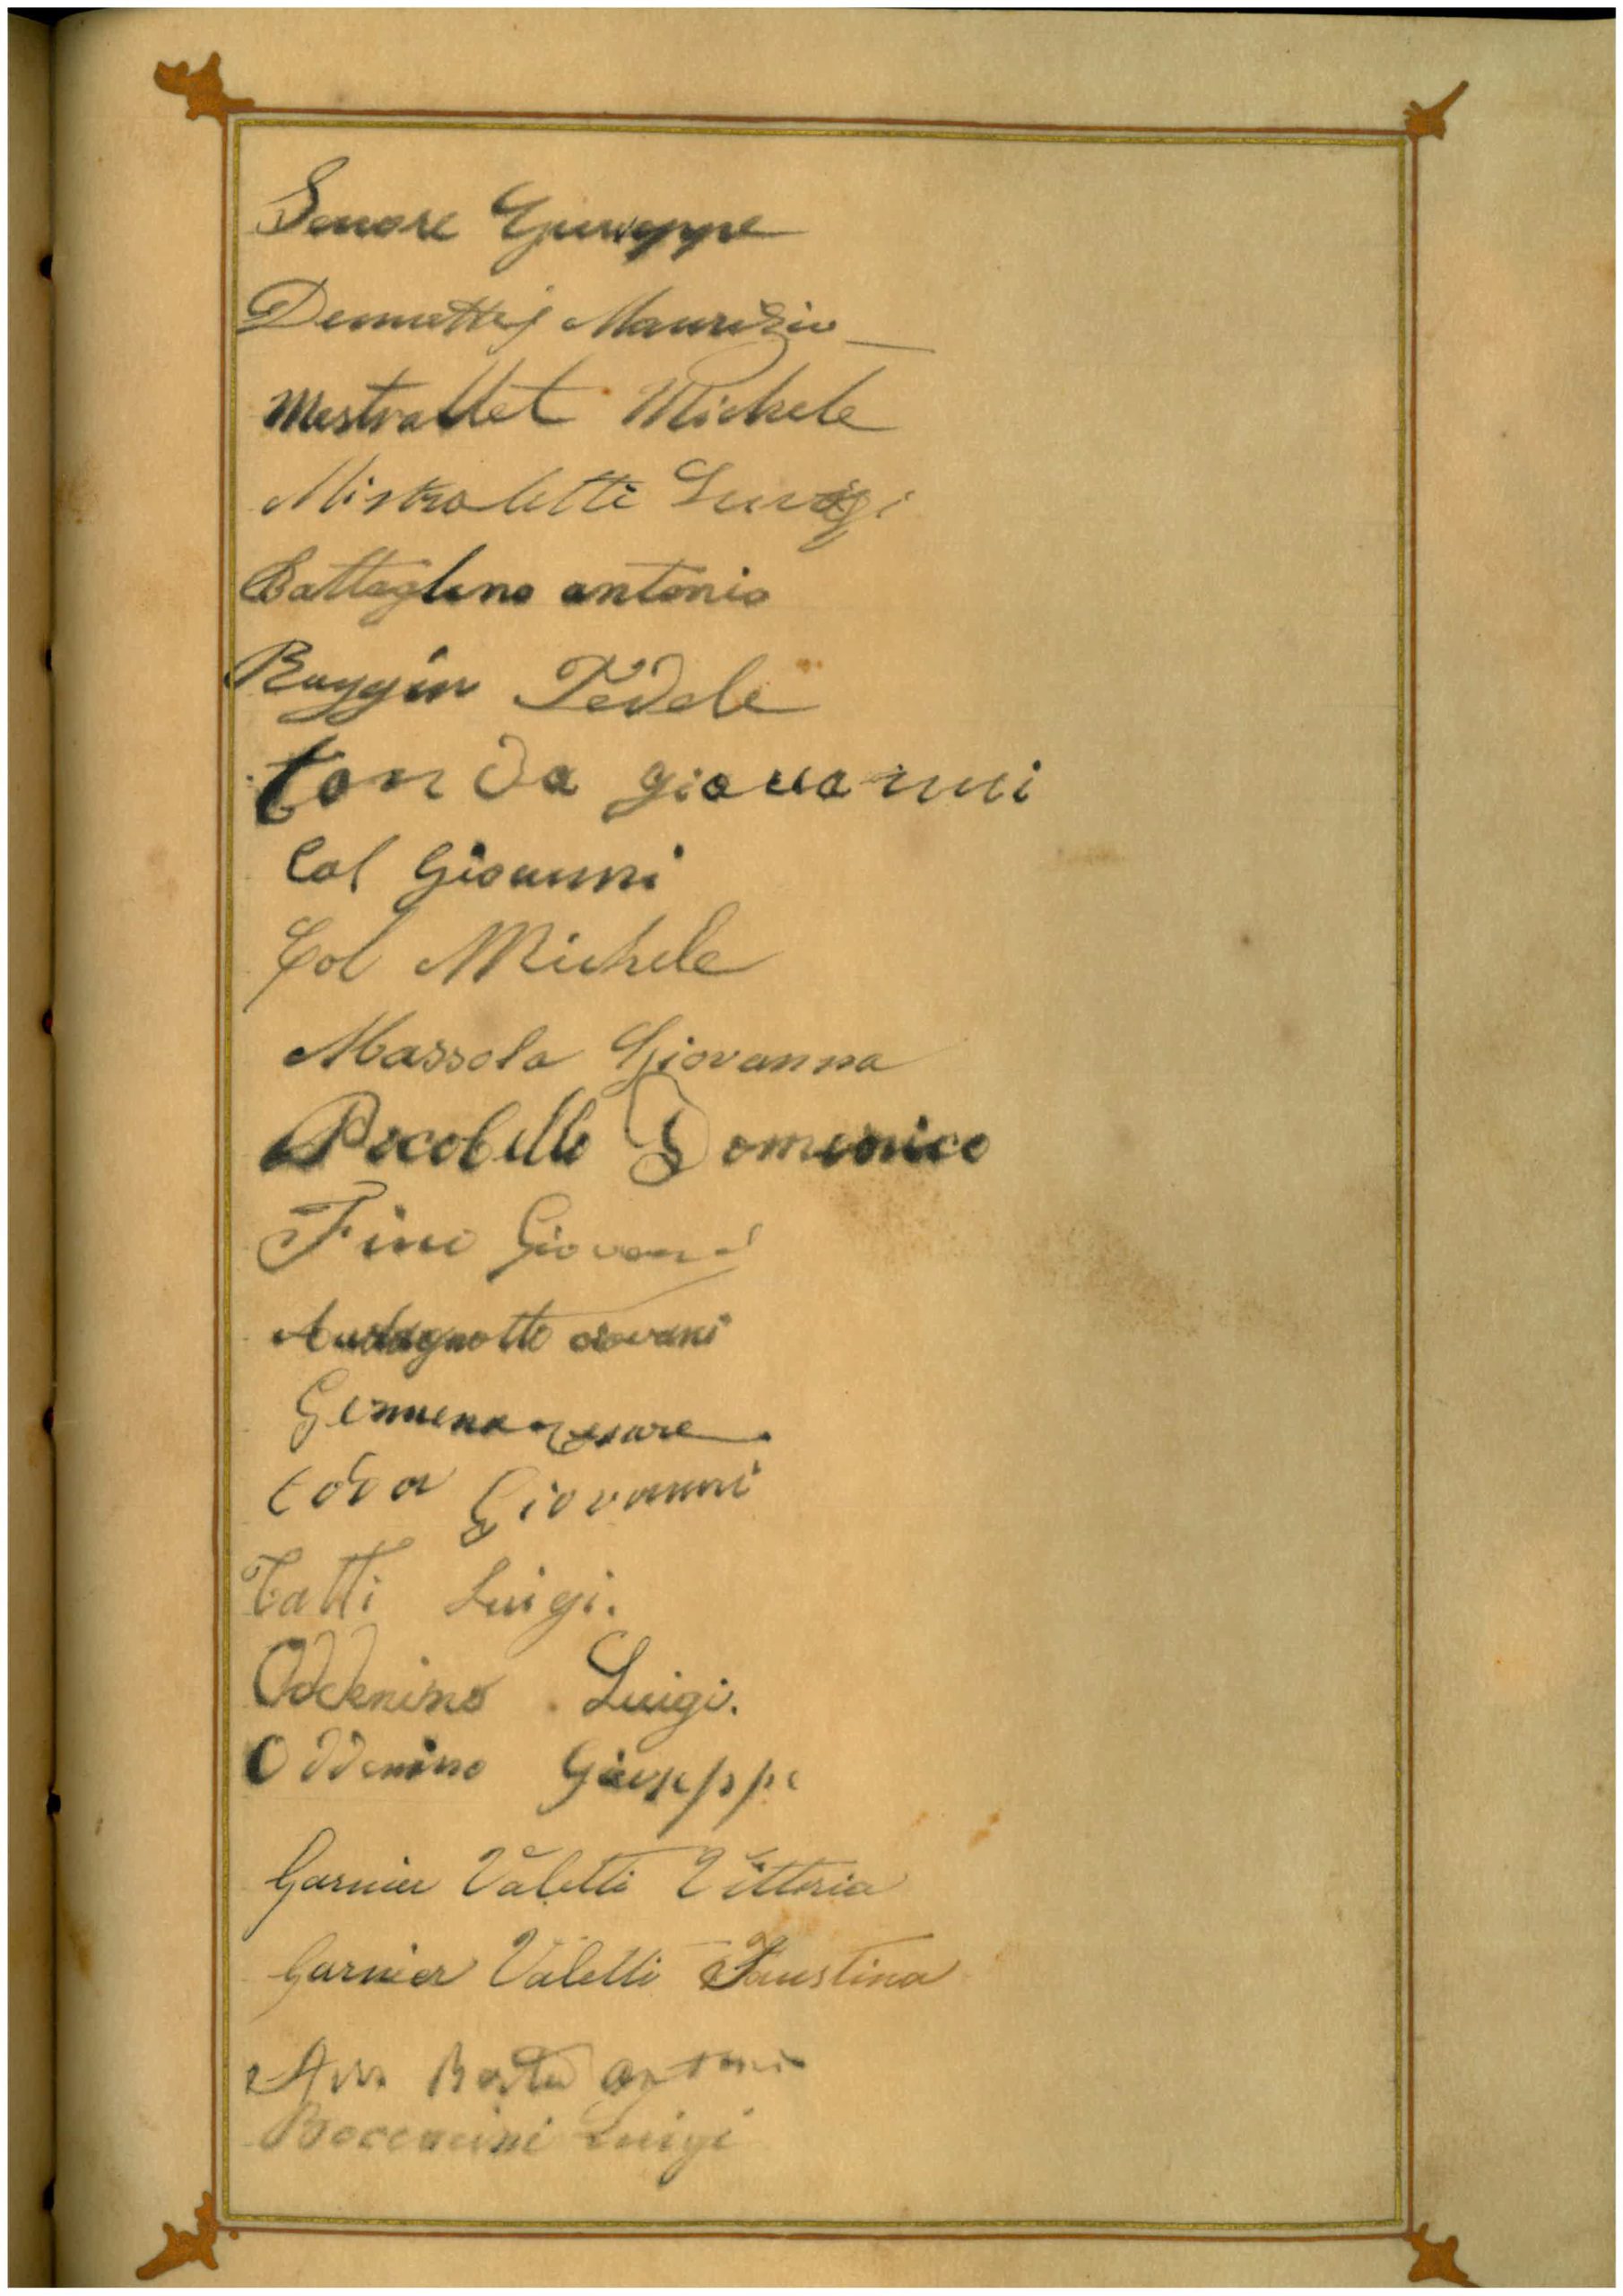 Senore Giuseppe
Demattej Maurizio
Mestrallet Michele
Mistraletti Luvigi
Battaglino antonio
Ruggin Fedele
tonda giovanni
Col Giovanni
Col Michele
Massola Giovanna
Picolello Domenico
Fini Giovani
Audagnotto Giovani
Gemmena Cesare
toda Giovanni
Tatti Luigi.
Oddenino Luigi.
Oddenino Giuseppe
Garnier Valetti Vittoria
Garnier Valetti Faustina
antonio
Boccacini Luigi